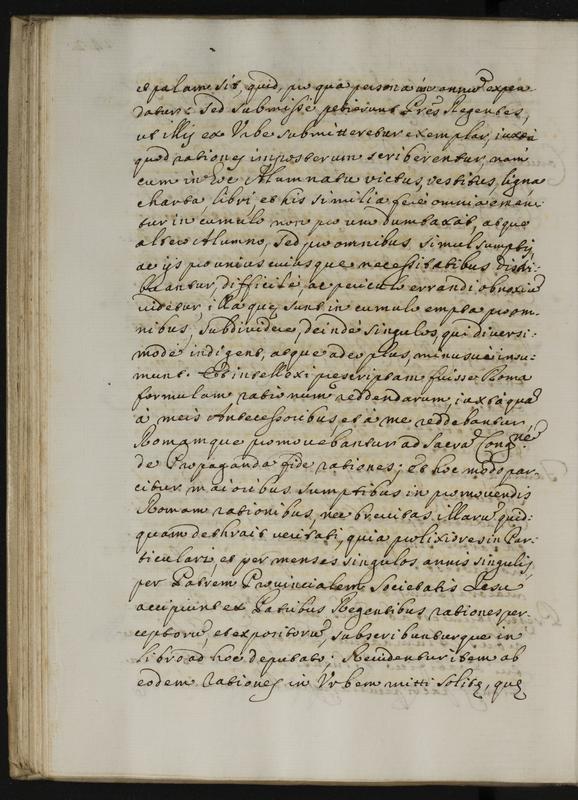 et palam sit, quid, pro qua persona in annũ expen
datur: Sed submissè petierunt Prẽs Regentes,
ut illis ex Urbe submitteretur exemplar, iuxta
quod rationes imposterum scriberentur, nam
cum in hoc Alumnatu victus, vestitus, ligna
charta libri et his similia ferè omnia eman:
tur in cumulo non pro uno dumtaxat, atque
altero Alumno, sed pro omnibus simul sumptis,
ac ijs pro unius cuiusque necessitatibus distri:
buantur, difficile, ac periculo errandi obnoxiũ
videtur, illa quę sunt in cumulo empta pro om:
nibus, subdividere, deinde singulos, qui diversi:
modè indigent, atque adeo plus, minusuè insu:
munt. Et intellexi prescriptam fuisse Roma
formulam rationum reddendarum, iuxta quã
à meis Antecessoribus et à me reddebantur,
Romamque promovebantur ad Sacrã Congnẽ
de Propaganda fide rationes; et hoc modo par:
citur maioribus sumptibus in promovendis
Romam rationibus, nec brevitas illarũ quid:
quam dethrait veritati, quia prolixiores in Par:
ticulari et per menses singulos annis singulis
per Patrem Provincialem Societatis Iesu
accipiunt ex Patribus Regentibus rationes per
ceptorũ, et expositorũ, subscribunturque in
libro ad hoc deputato; Revidentur item ab
eodem rationes in Urbem mitti solitę, quę